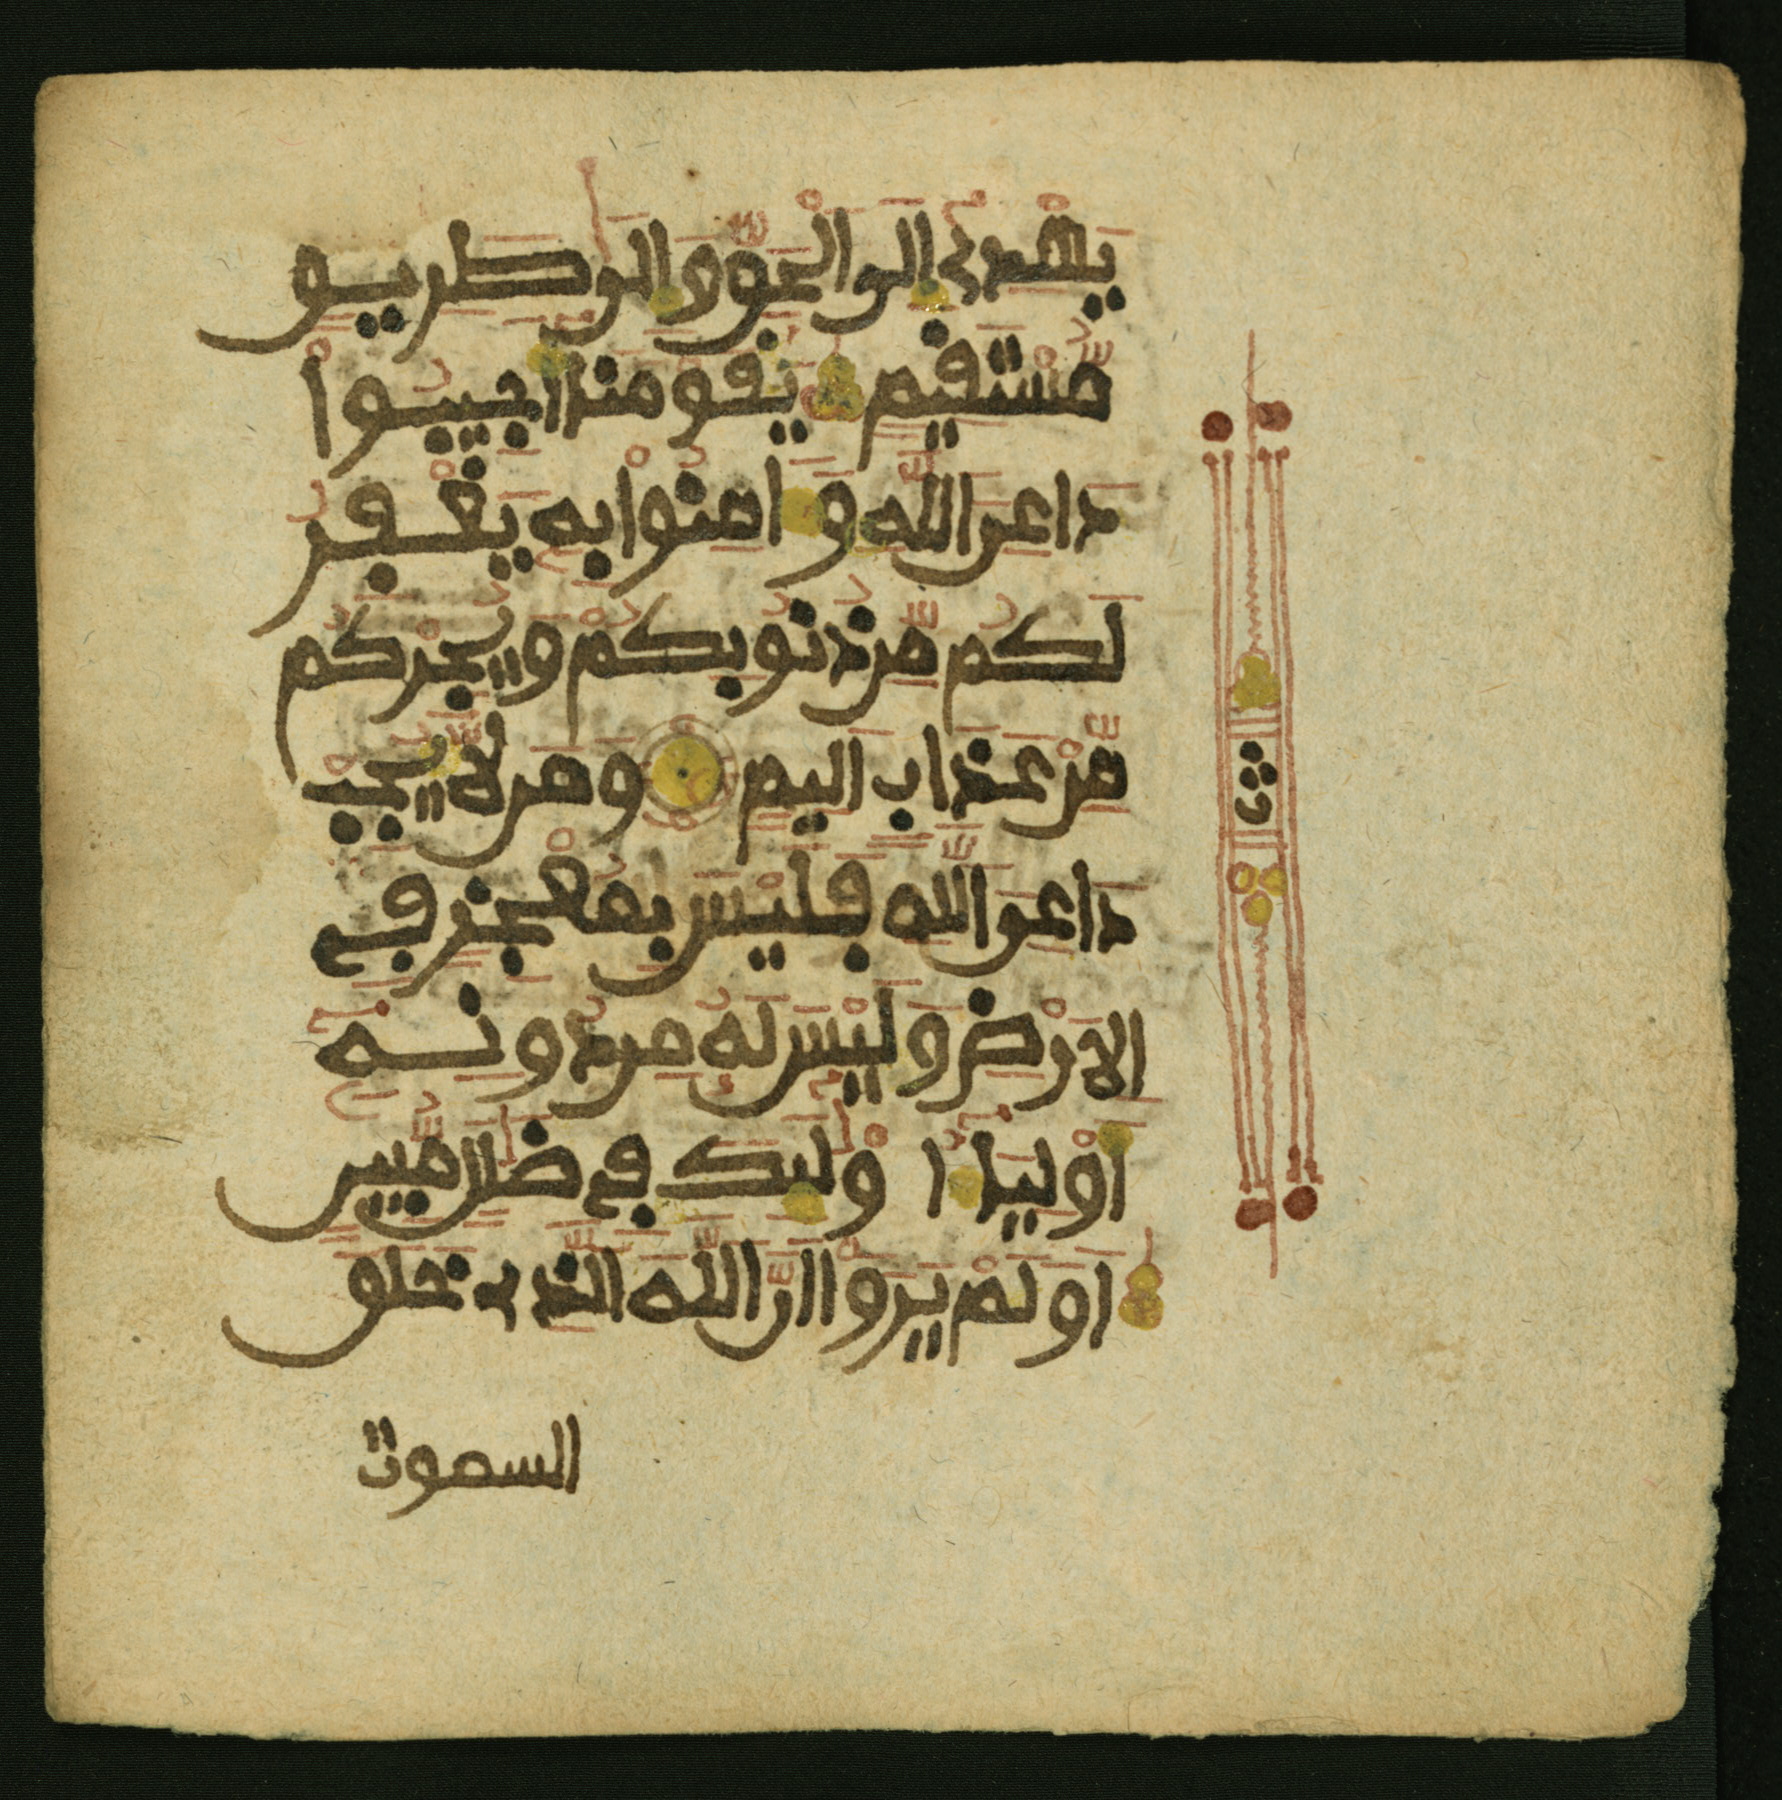 يهدي الى الحق والى طريق
مستقيم يقومنا اجيبوا
داعي الله وامنوا به يغفر
لكم من ذنوبكم ويجركم
من عذاب اليم ومن لا يجب
داعي الله فليس بمعجز في
الارض وليس له من دونه
اولياء اوليك في ضلل مبين
اولم يروا ان الله الذي خلق
السموت